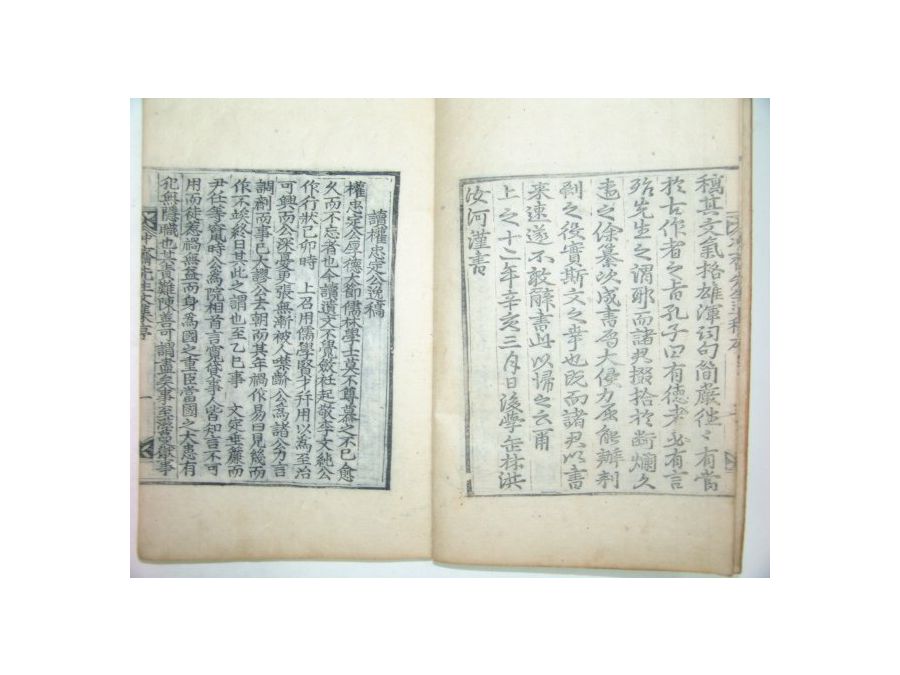 稿其文氣格雄渾詞句簡嚴徃〻有當
於古作者之旨孔子曰有德者必有言
殆先生之謂耶而諸君掇拾於斷爛久
遠之餘纂次成書局大侯力
剞之役實斯文之幸也既而諸君以書
來速遂不敢辭書此以歸之云爾
上之十二年辛亥三月日後學缶林洪
汝河謹書
讀權忠定公逸稿
權忠定公厚德大節儒林學士莫不尊慕之不已愈
久而不忘者也今讀遺文不覺斂衽起敬李文純公
作行狀己卯時 上召用儒學賢才幷用以為至治
可興而公深憂更張無漸被人噤齡公為諸公力言
調劑而事已大謬公去朝而其年禍作易曰見幾而
作不竢終日其此之謂也至乙巳事 文定垂簾而
尹任等竄時公為院相首言冤人皆知言不可
用而徒惹禍無益而身為國之重臣當國之大患有
犯無隱職也其書雖陳善可謂盡矣事至事
冲齋先生文集序 一